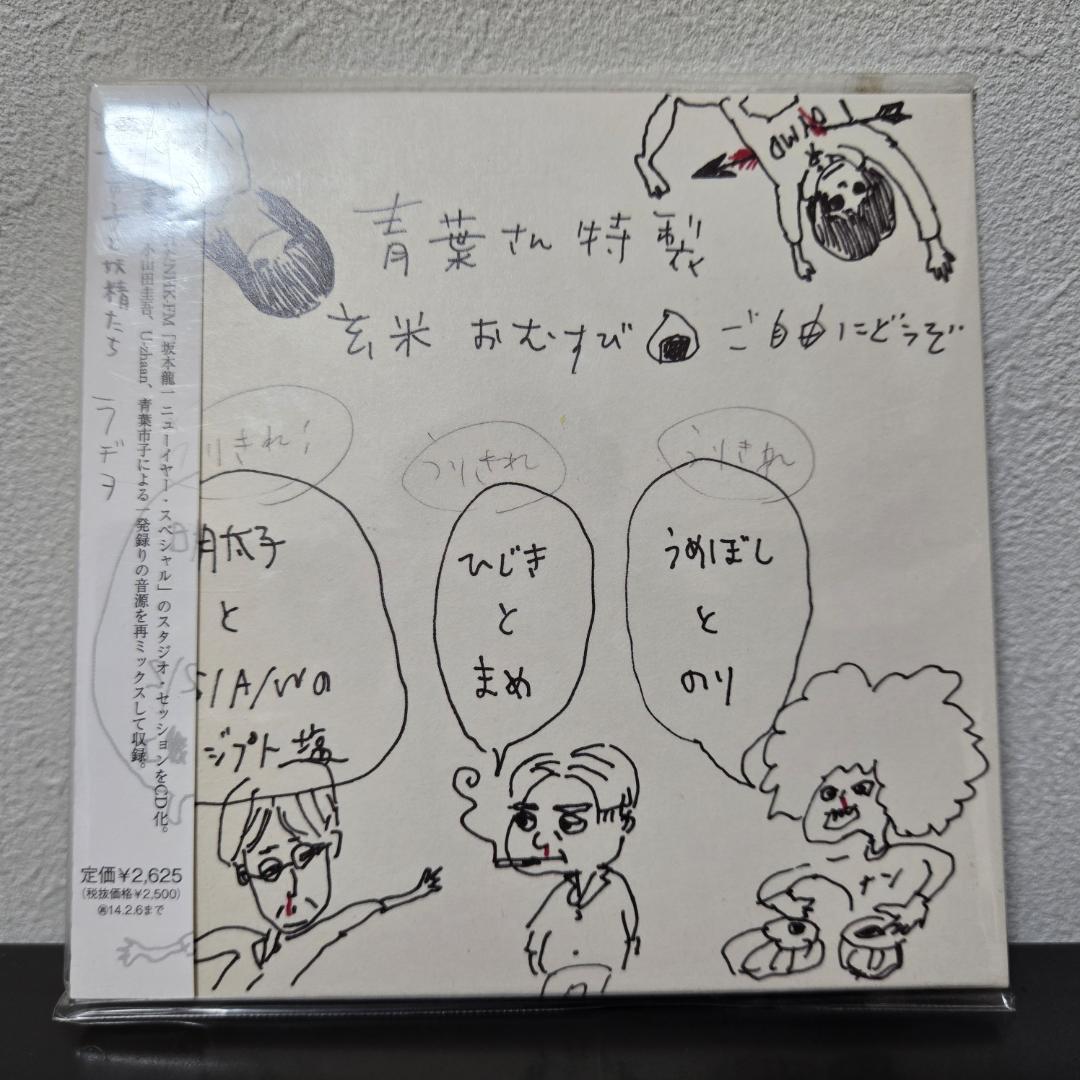 青葉さん特製
玄米おむすび ご自由にどうぞ
OWMD
りきれ!
うりきれ
うりきれ
明太子
と
S/A/Wの
ジプト塩
ひじき
と
まめ
うめぼし
と
のり
ナン
子と妖精たち
ラヂヲ
たNHK-FM「坂本龍一 ニューイヤー・スペシャル」のスタジオ・セッションをCD化。
小山田圭吾、U-zhaan、青葉市子による一発録りの音源を再ミックスして収録。
定価¥2,625
(税抜価格¥2,500)
14.2.6まで